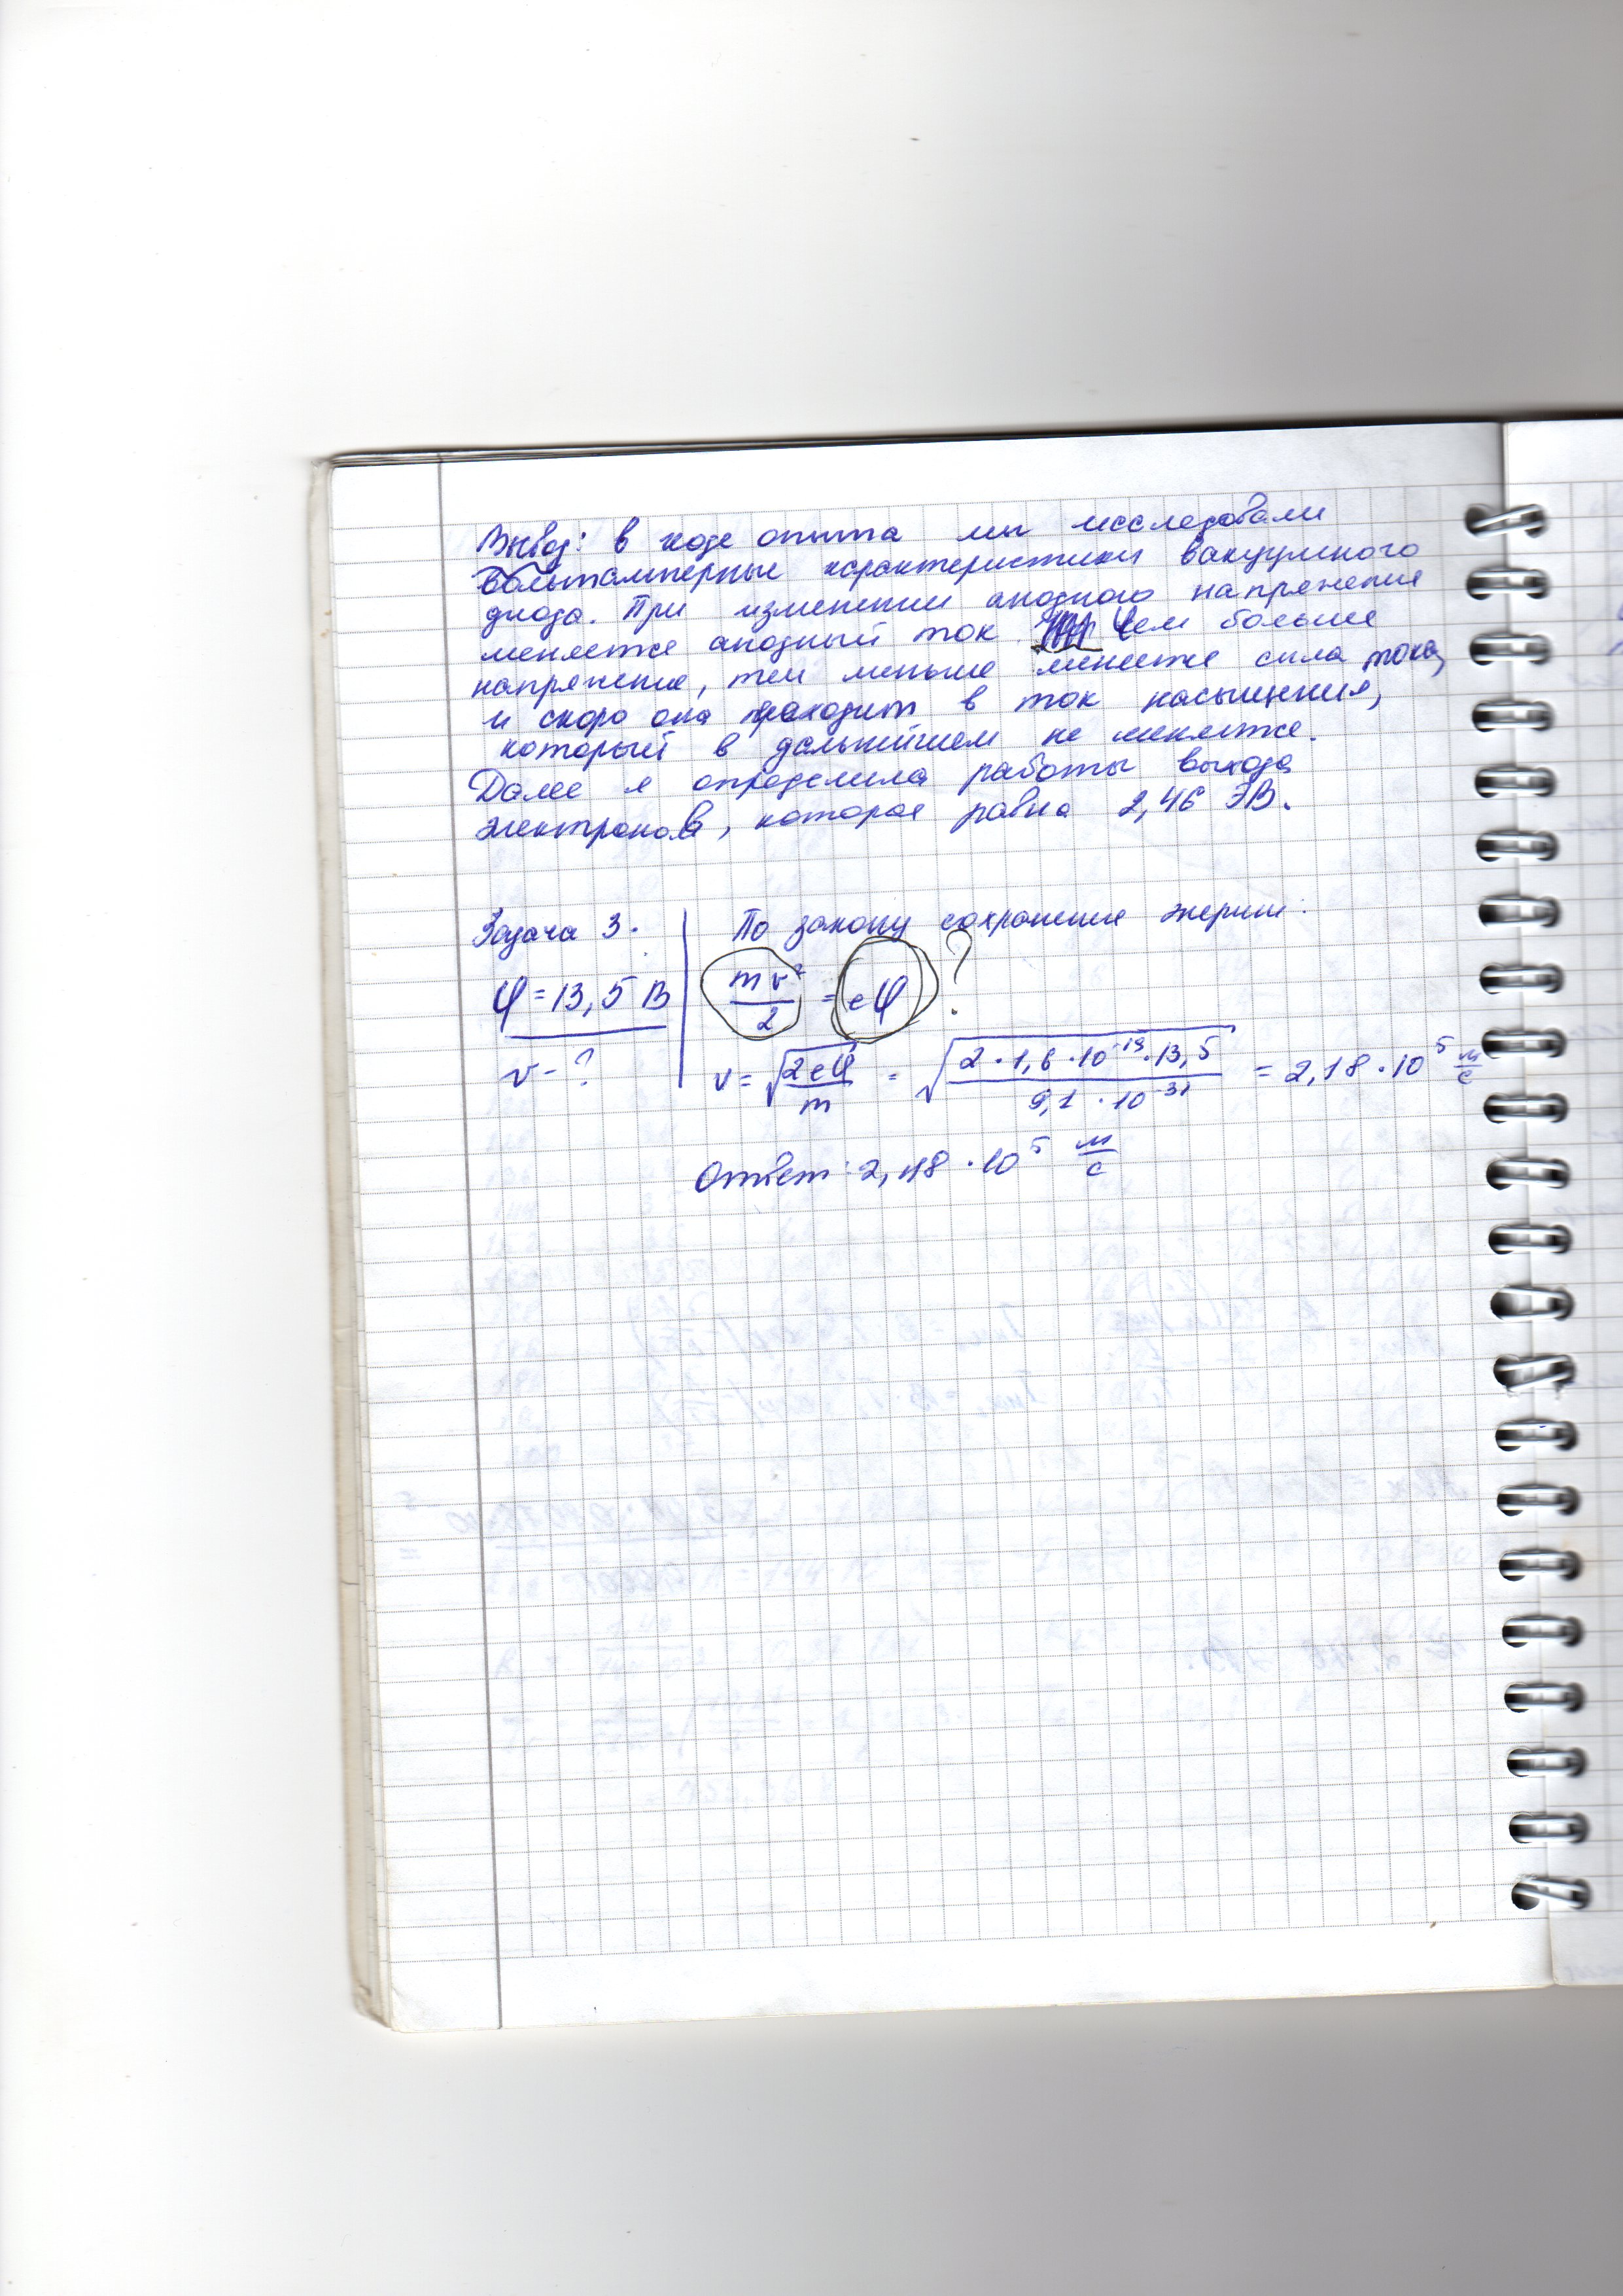 Вывод: в ходе опыта мы исследовали
вольтамперные характеристики вакуумного
диода. При изменении анодного напряжения
меняется анодный ток. Чем больше
напряжение, тем меньше меняется сила тока,
и скоро она приходит в ток насыщения,
который в дальнейшем не меняется.
Далее я определила работы выхода
электронов, которая равна 2,46 ЭВ.
Задача 3.
φ = 13,5 В
v - ?
По закону сохранения энергии:
mv²/2 = eφ ?
v = √(2eφ/m) = √(2 · 1,6 · 10⁻¹⁹ · 13,5 / 9,1 · 10⁻³¹) = 2,18 · 10⁵ м/с
Ответ: 2,18 · 10⁵ м/с